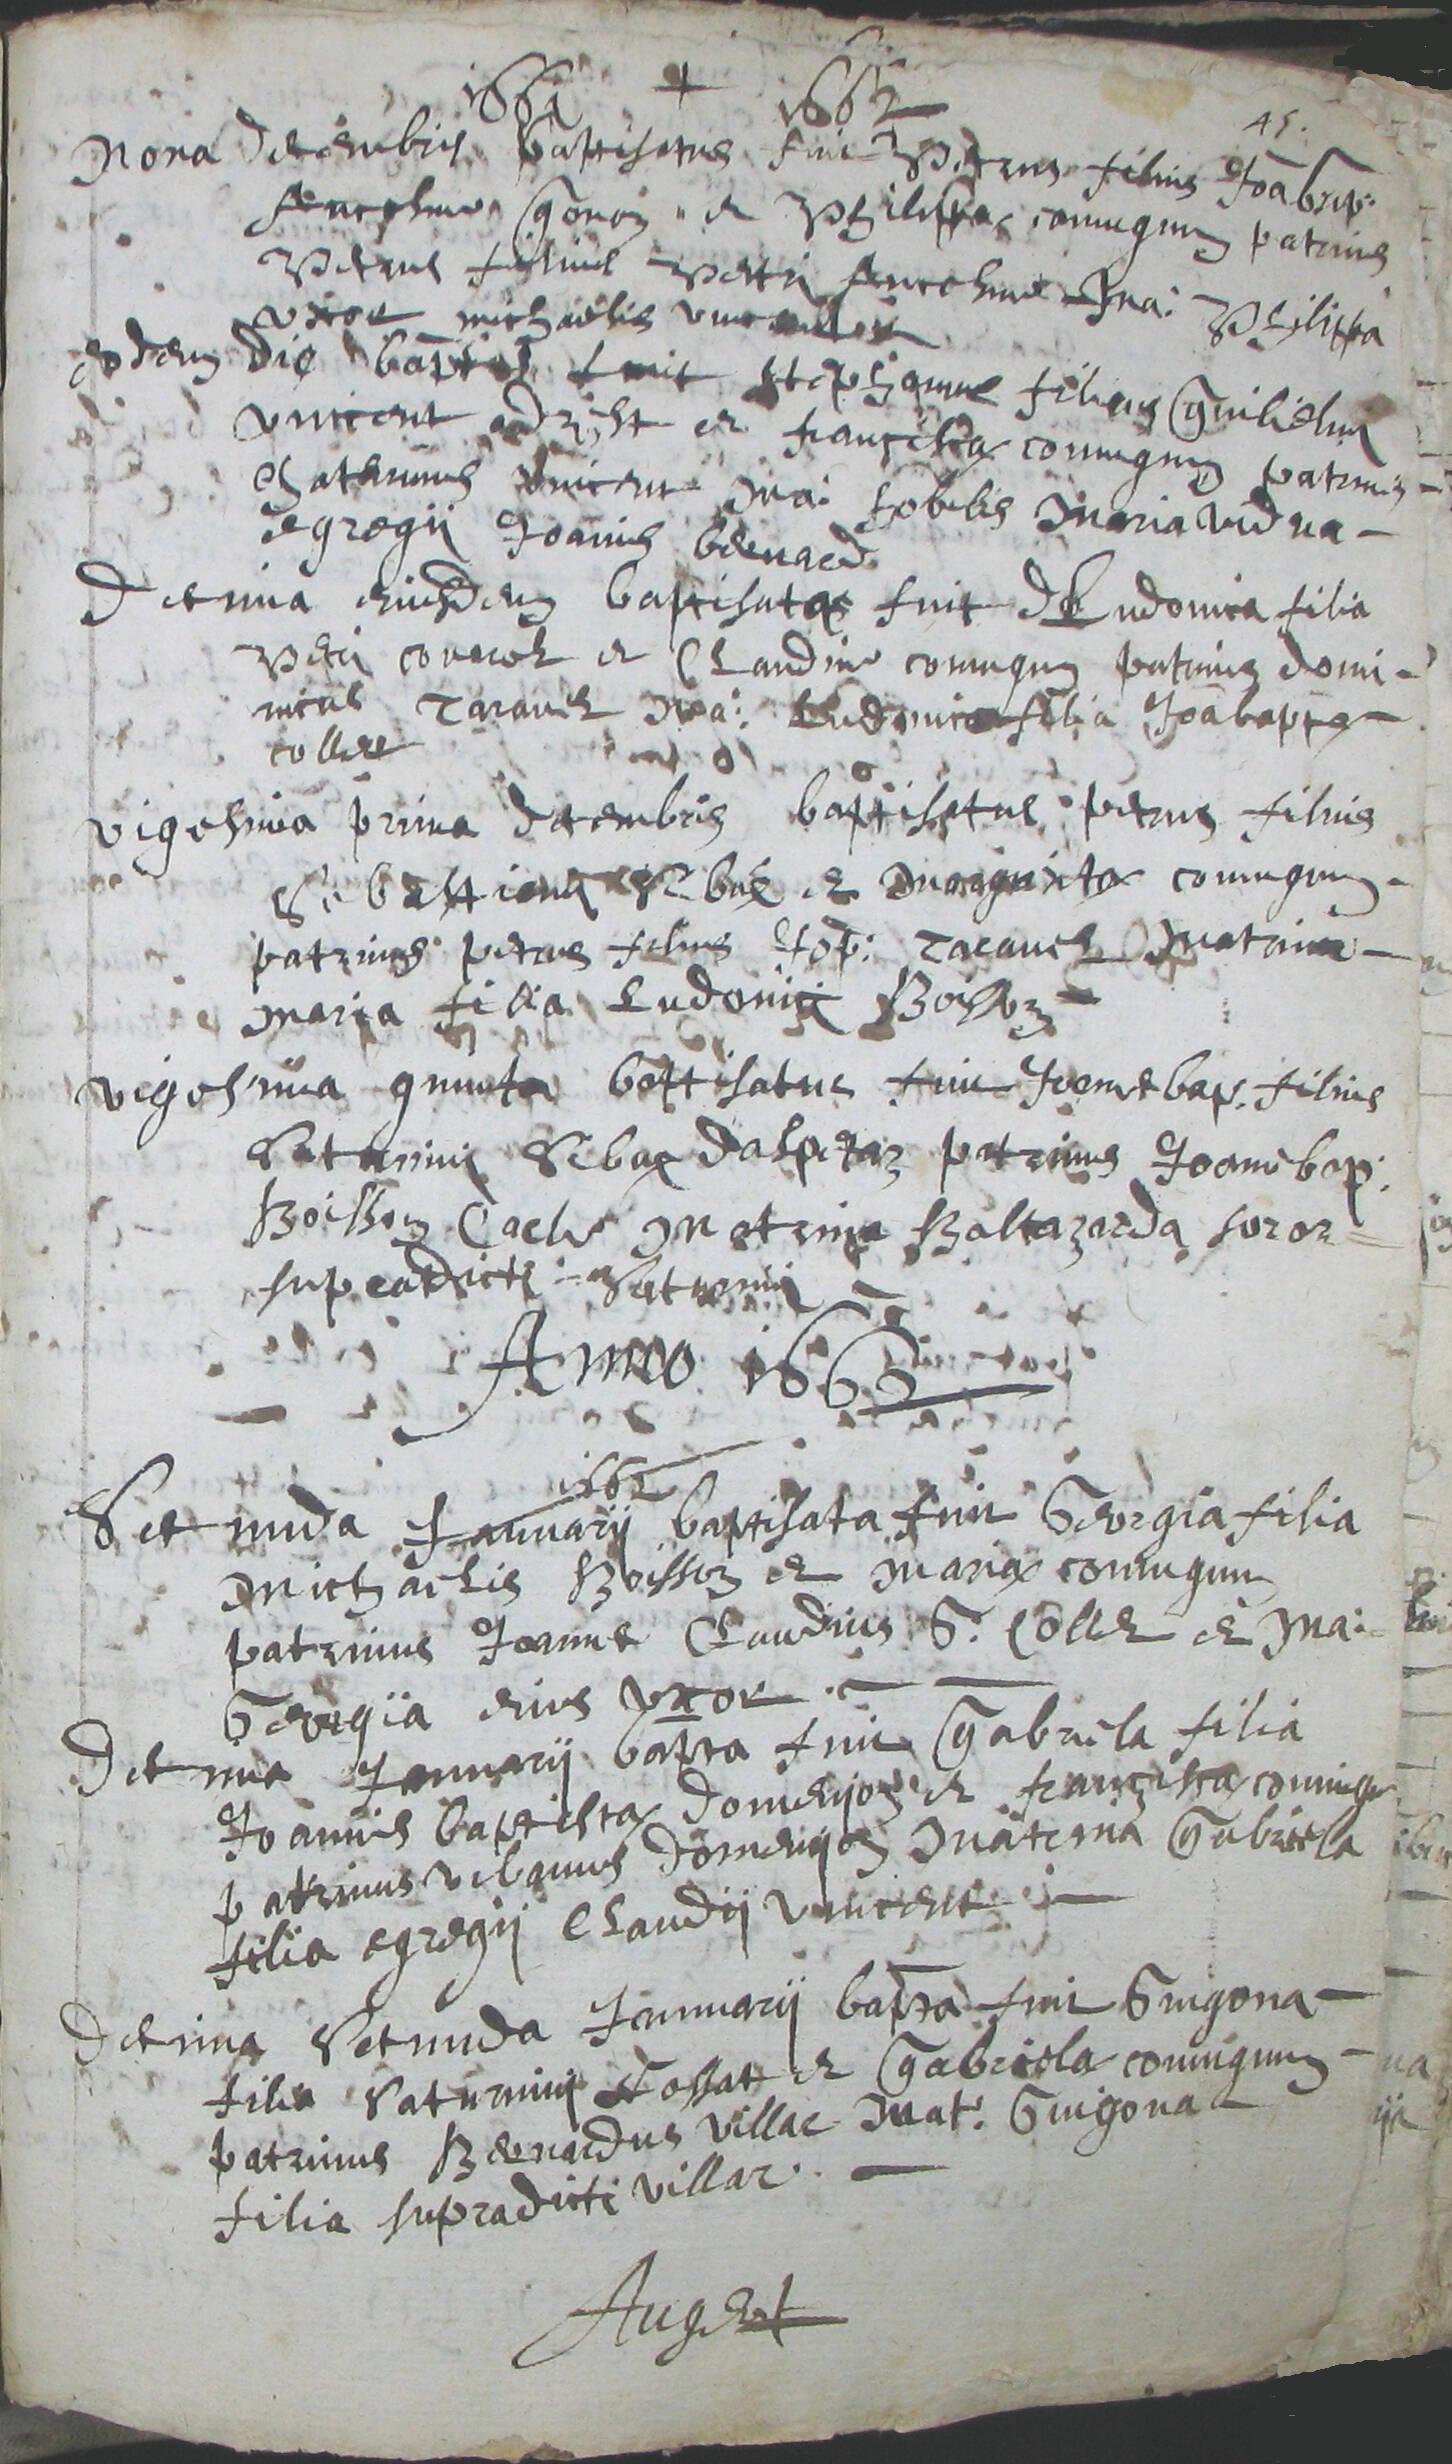 1661 + 1662
45.
Nona decembris baptisatus fuit Petrus filius Joãbap:
Anselme Goron et Philippæ coniugum patrinus
Petrus filius Petri Anselme Ma: Philippa
uxor michaelis vincent
eodem die bapt fuit stephanus filius Guilielmi
vincent et francisca coniugum patrinus
Saturninus vincent Ma: Nobilis Maria vidua
egregii Joannis bernard
Decima eiusdem baptisata fuit Ludovica filia
Petri et Claudiæ coniugum patrinus domi-
nicus Taravel Ma: Ludovica filia Joãbaptæ
collet
vigesima prima decembris baptisatus petrus filius
Sebastiani et Margaritæ coniugum
patrinus petrus filius Jop: Taravel Matrina
maria filia Ludovici Boisson
vigesima quinta battisatus fuit Joannesbap. filius
Saturnini patrinus Joannesbap:
Boisson Matrina Baltazarda soror
supradicti Saturnini
Anno 1662
1662
Secunda Januarij baptisata fuit Georgia filia
Michaelis Boisson et Mariæ coniugum
patrinus Joannes Claudius S. Collet et Ma:
Georgia eius uxor
Decima Januarij bapta fuit Gabriela filia
Joannis baptistæ domenjon et franciscæ coniugum
patrinus urbanus domenjon Matrina Gabriela
filia egregij Claudij vincent
Decima Secunda Januarij bapta fuit Guigona
filia Saturnini Cossat et Gabrielæ coniugum
patrinus Bernardus villar Mat: Guigona
filia supradicti villar
Augert